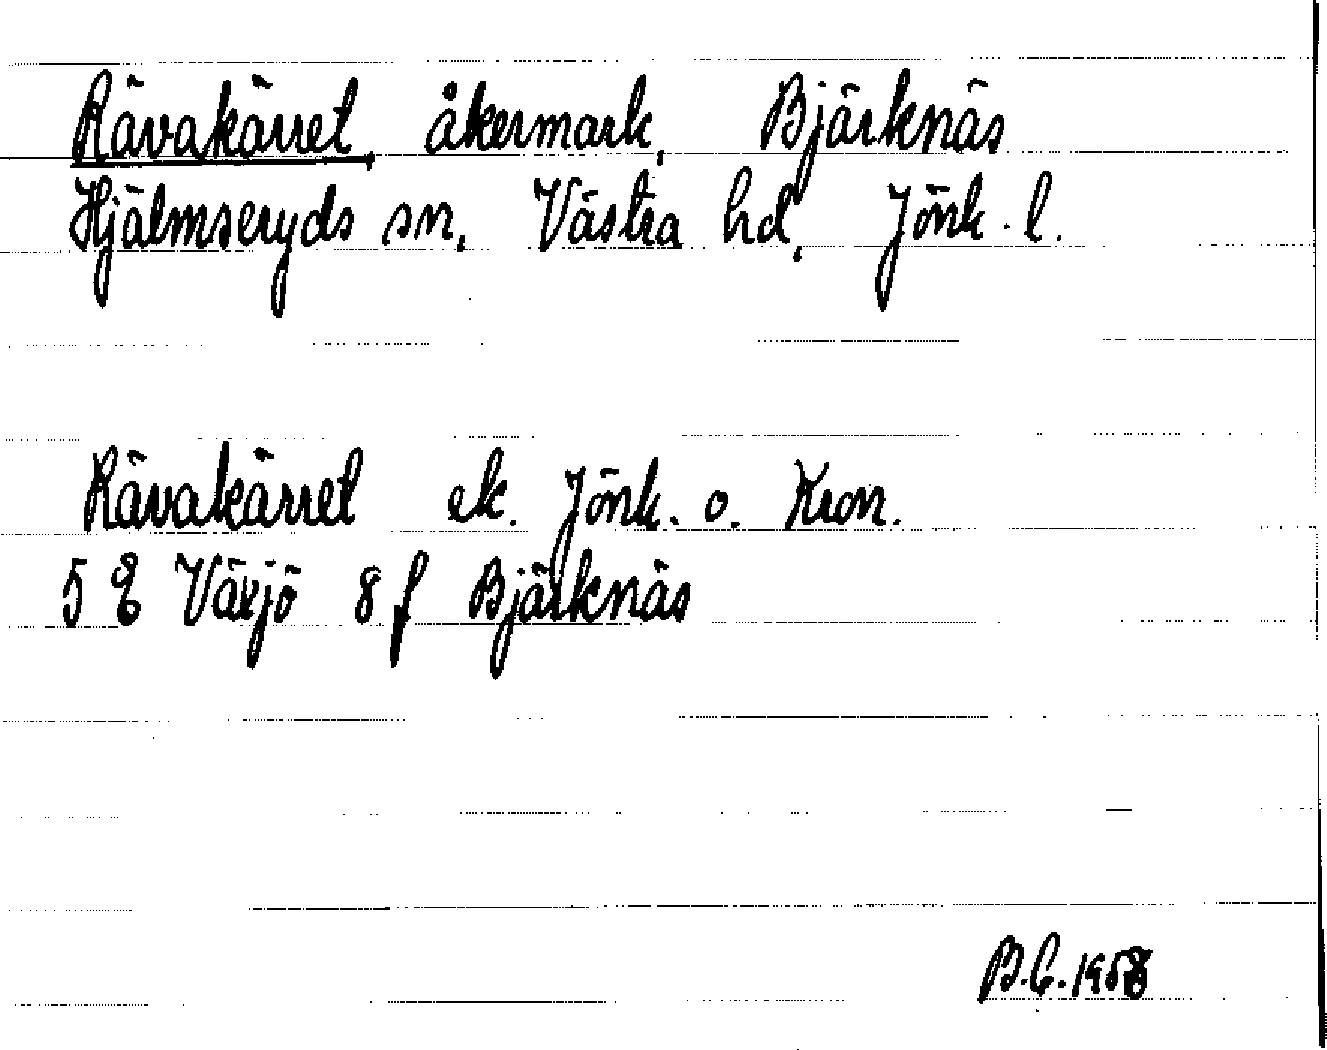 Rävakärret, åkermark, Bjärknäs
Hjälmseryds sn, Västra hd, Jönk. l.
Rävakärret ek. Jönk. o. Kron.
5 E Växjö 8 f Bjärknäs
B.C. 1958